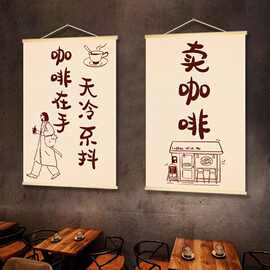 咖啡在手
天冷不抖
卖咖啡